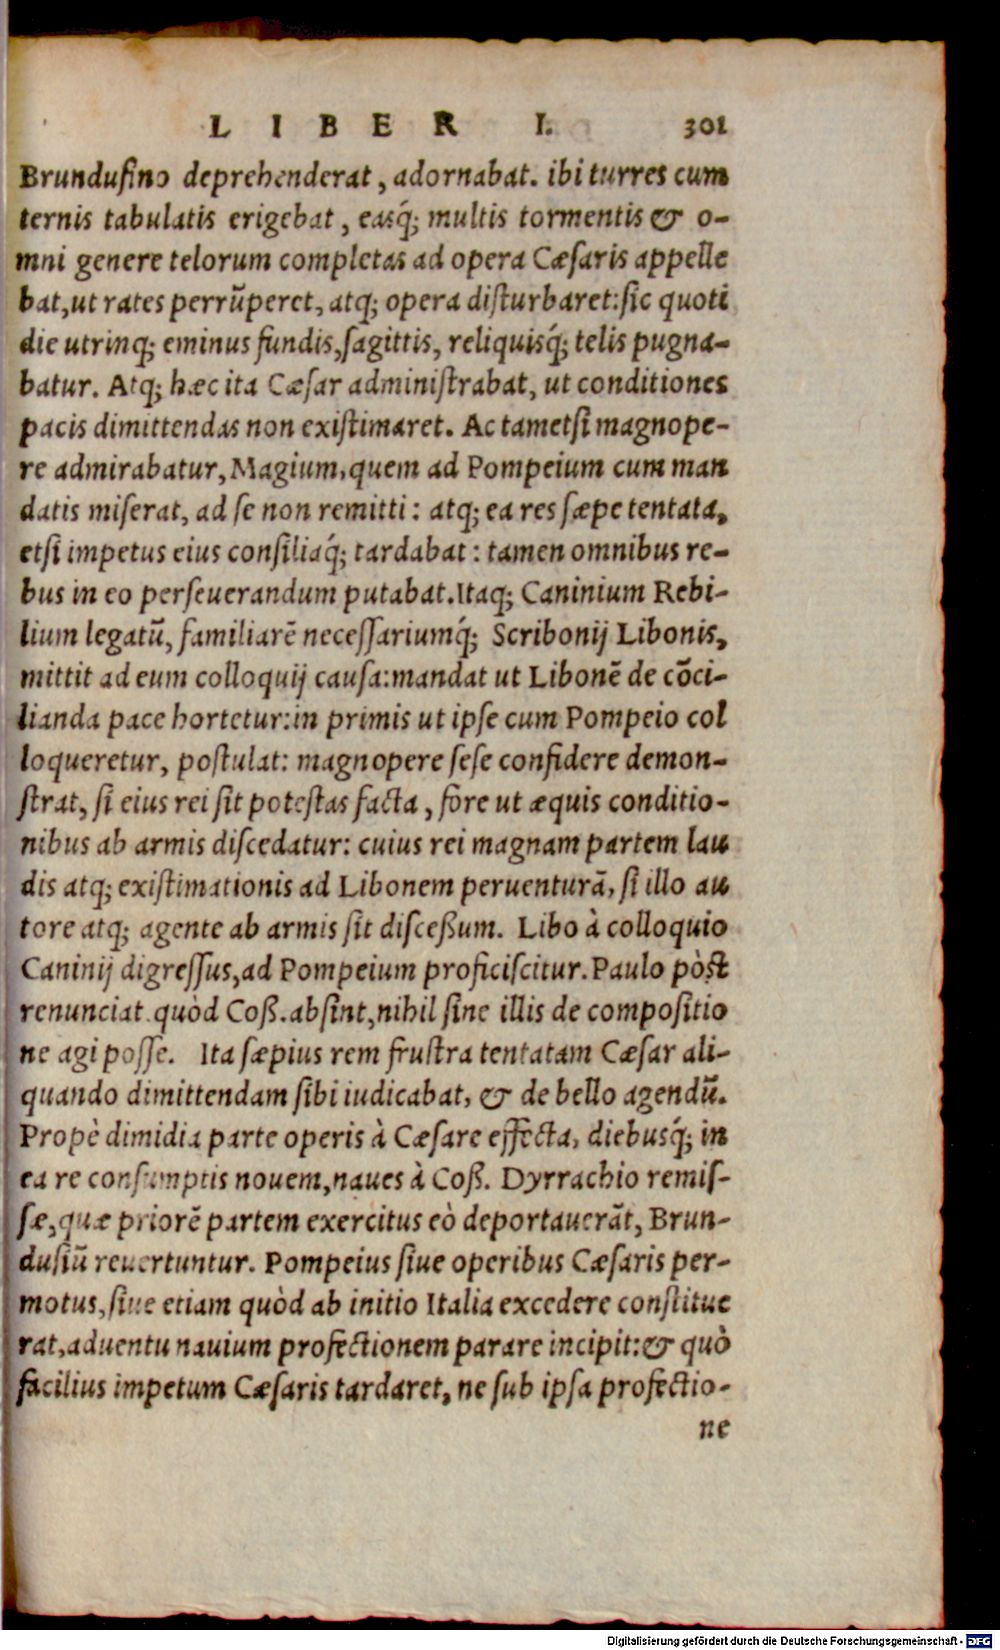 LIBER I. 301
Brundusino deprehenderat, adornabat. ibi turres cum
ternis tabulatis erigebat, easq́; multis tormentis & o-
mni genere telorum completas ad opera Cæsaris appelle
bat, ut rates perrũperet, atq; opera disturbaret: sic quoti
die utrinq; eminus fundis, sagittis, reliquisq́; telis pugna-
batur. Atq; hæc ita Cæsar administrabat, ut conditiones
pacis dimittendas non existimaret. Ac tametsi magnope-
re admirabatur, Magium, quem ad Pompeium cum man
datis miserat, ad se non remitti: atq; ea res sæpe tentata,
etsi impetus eius consiliaq́; tardabat: tamen omnibus re-
bus in eo perseuerandum putabat. Itaq; Caninium Rebi-
lium legatũ, familiarẽ necessariumq́; Scribonij Libonis,
mittit ad eum colloquij causa: mandat ut Libonẽ de cõci-
lianda pace hortetur: in primis ut ipse cum Pompeio col
loqueretur, postulat: magnopere sese confidere demon-
strat, si eius rei sit potestas facta, fore ut æquis conditio-
nibus ab armis discedatur: cuius rei magnam partem lau
dis atq; existimationis ad Libonem peruenturã, si illo au
tore atq; agente ab armis sit disceßum. Libo à colloquio
Caninij digressus, ad Pompeium proficiscitur. Paulo pòst
renunciat quòd Coß. absint, nihil sine illis de compositio
ne agi posse. Ita sæpius rem frustra tentatam Cæsar ali-
quando dimittendam sibi iudicabat, & de bello agendũ.
Propè dimidia parte operis à Cæsare effecta, diebusq́; in
ea re consumptis nouem, naues à Coß. Dyrrachio remis-
sæ, quæ priorẽ partem exercitus eò deportauerãt, Brun-
dusiũ reuertuntur. Pompeius siue operibus Cæsaris per-
motus, siue etiam quòd ab initio Italia excedere constitue
rat, aduentu nauium profectionem parare incipit: & quò
facilius impetum Cæsaris tardaret, ne sub ipsa profectio-
ne
Digitalisierung gefördert durch die Deutsche Forschungsgemeinschaft - DFG